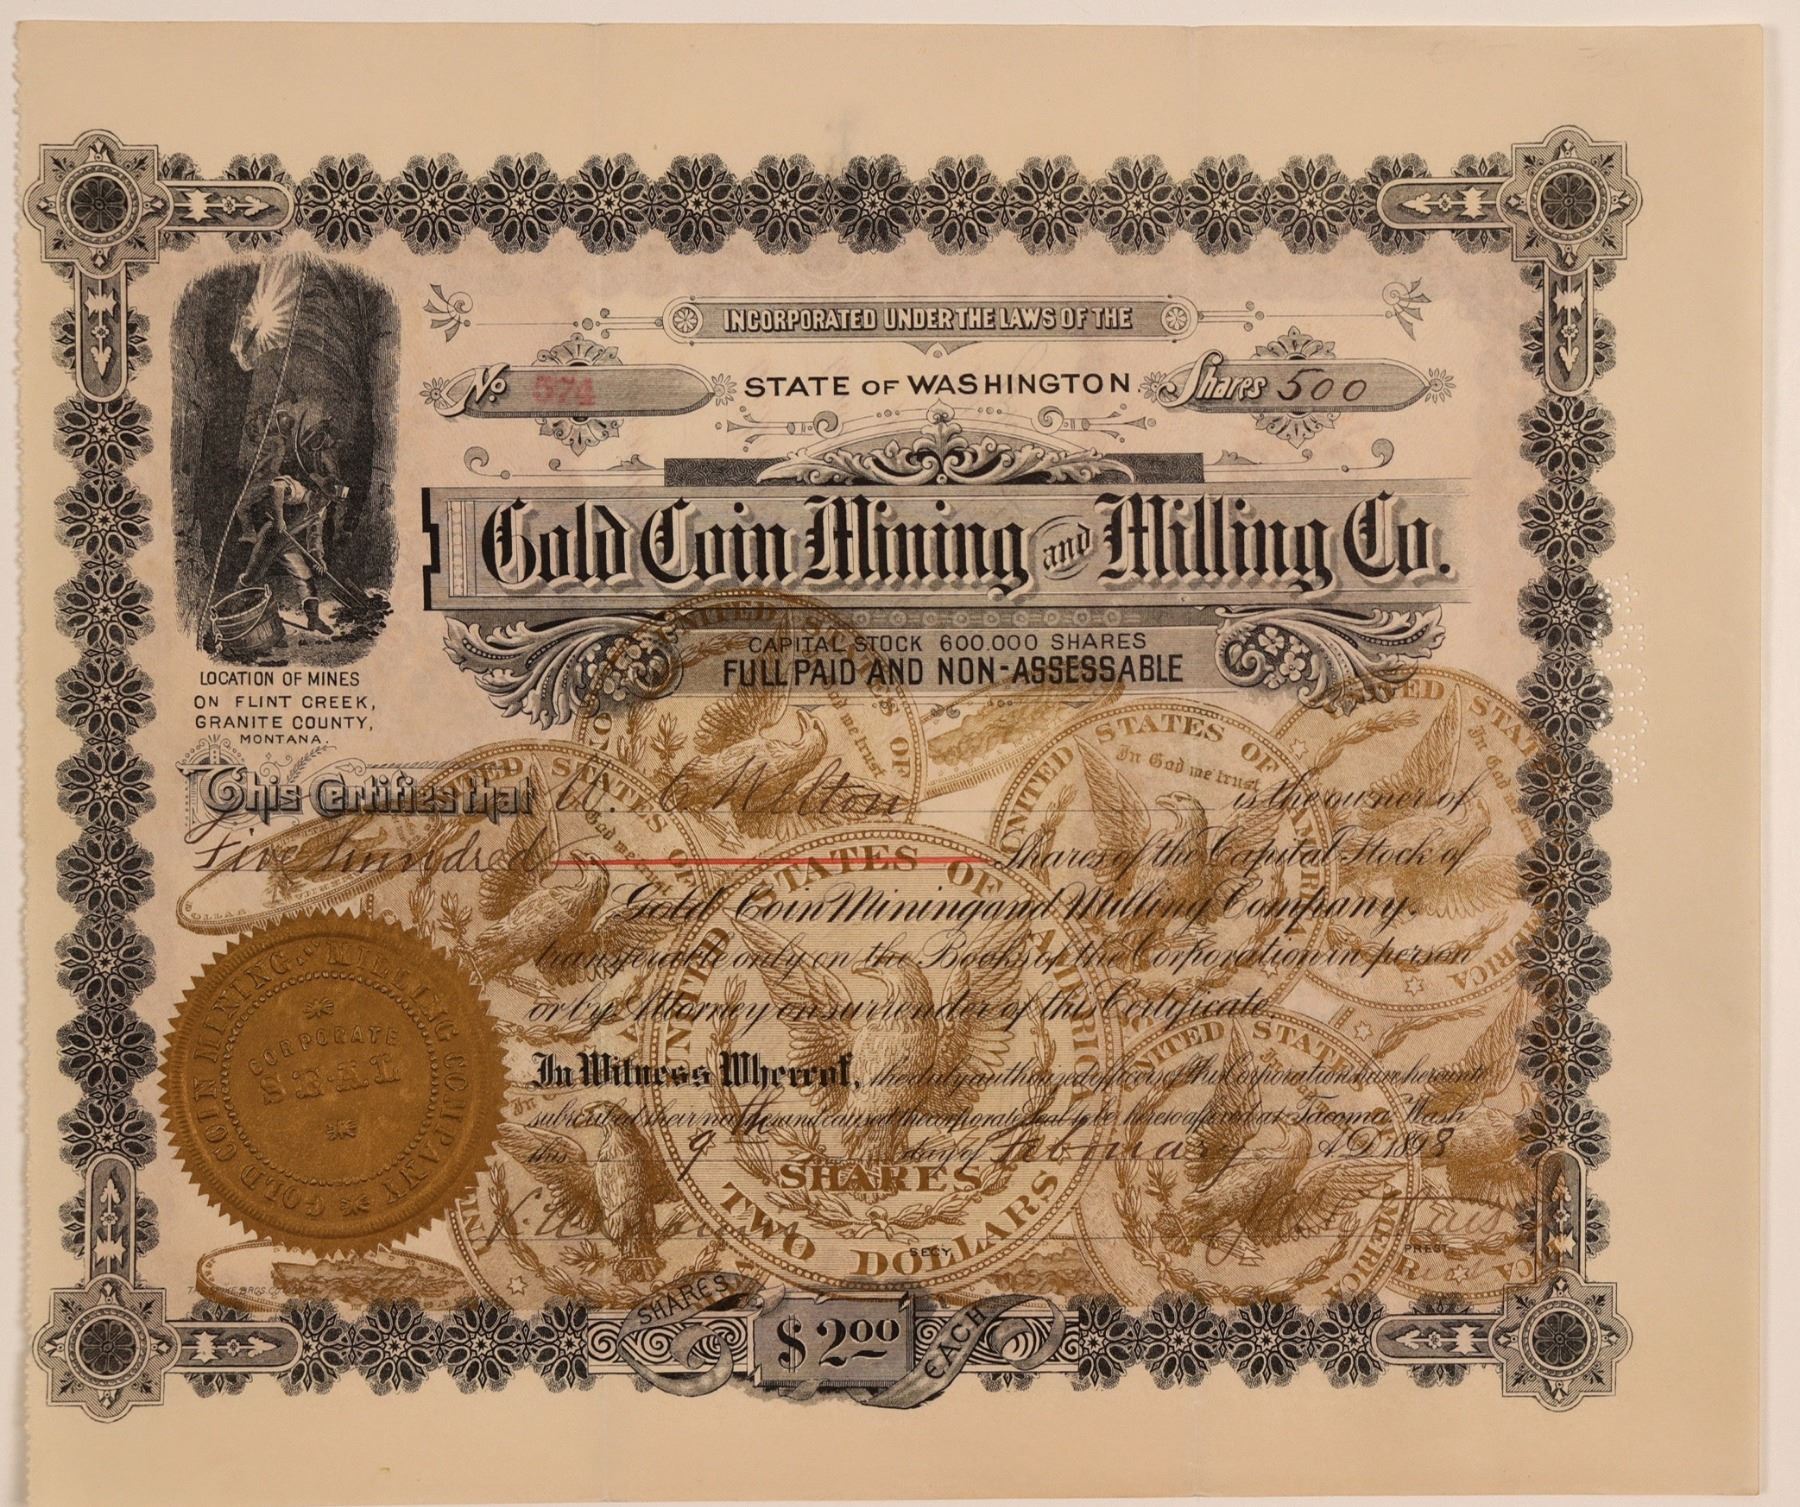 INCORPORATED UNDER THE LAWS OF THE
No. 574
STATE OF WASHINGTON
Shares 500
Gold Coin Mining and Milling Co.
CAPITAL STOCK 600.000 SHARES
FULL PAID AND NON-ASSESSABLE
LOCATION OF MINES
ON FLINT CREEK,
GRANITE COUNTY,
MONTANA.
This Certifies that W. C. Welton is the owner of
Five hundred Shares of the Capital Stock of
Gold Coin Mining and Milling Company.
transferable only on the Books of the Corporation in person
or by Attorney on surrender of this Certificate.
In Witness Whereof, the duly authorized officers of this Corporation have hereunto
subscribed their names and caused the corporate Seal to be hereto affixed at Tacoma, Wash
this 9th day of February A.D. 1898
SECY.
PREST.
GOLD COIN MINING & MILLING COMPANY
CORPORATE
SEAL
UNITED STATES OF AMERICA
In God we trust
SHARES
TWO DOLLARS
SHARES $2.00 EACH